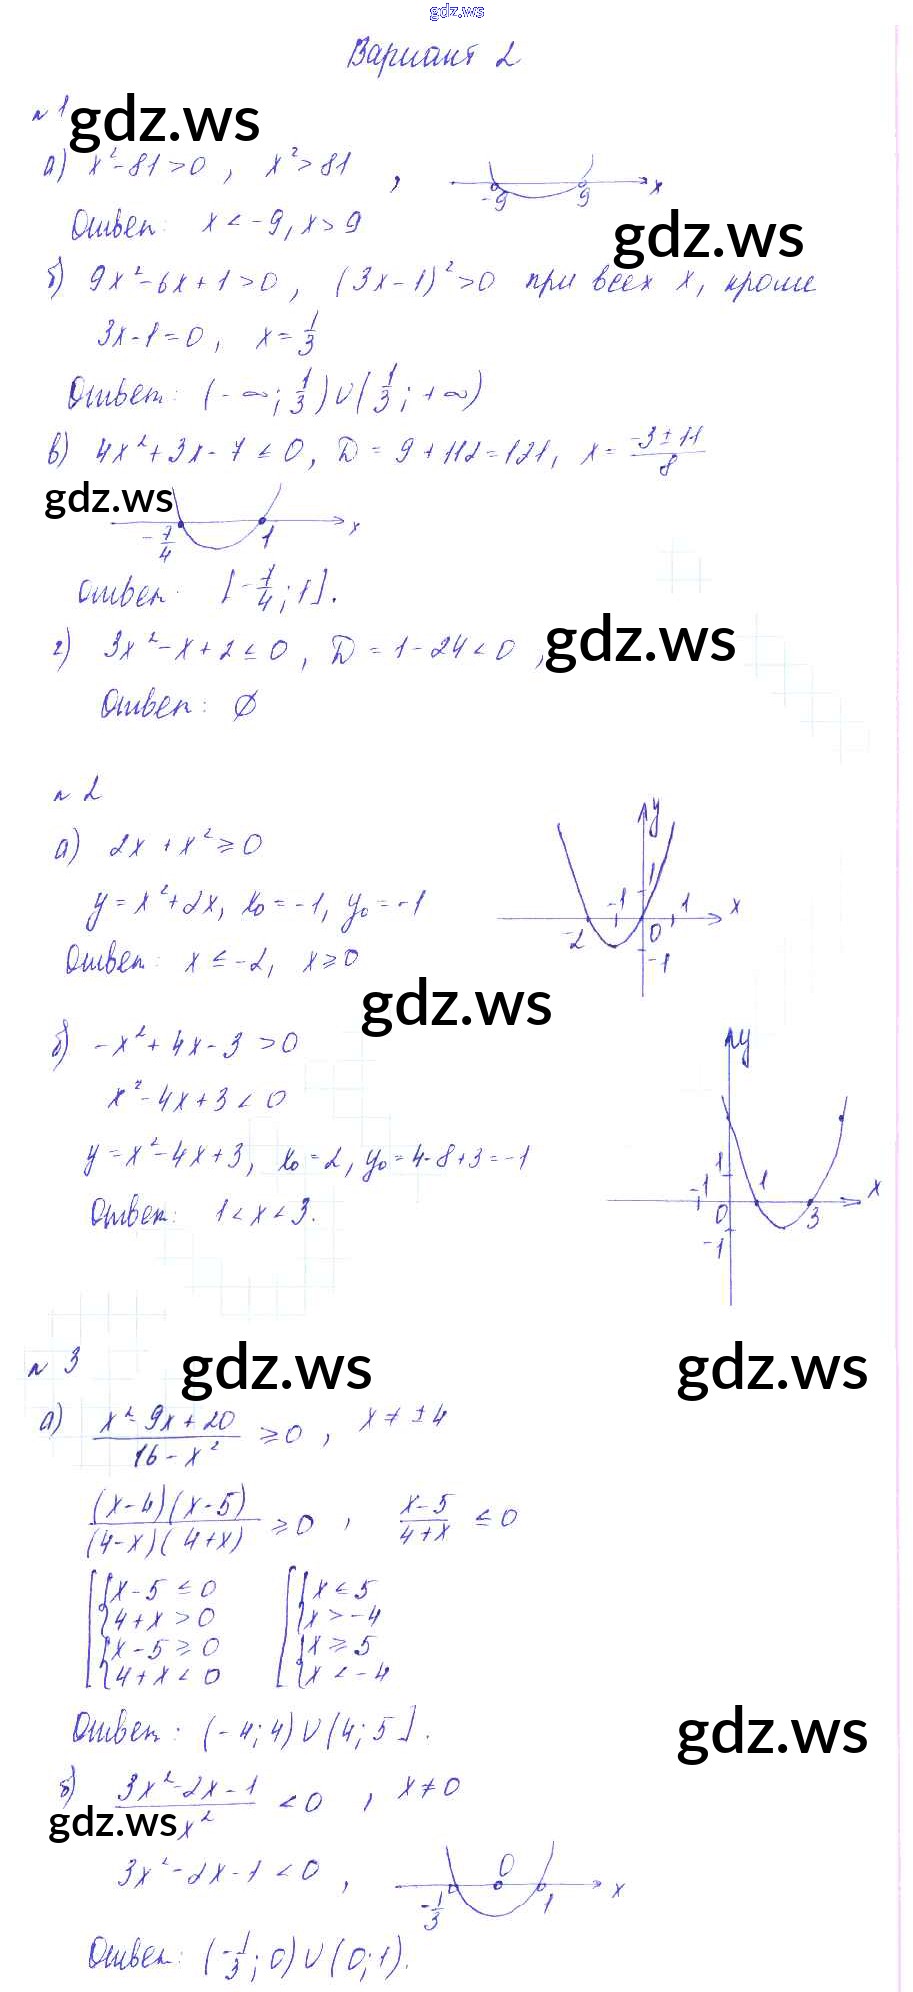 gdz.ws
Вариант 2
№ 1
gdz.ws
а) x² - 81 > 0 , x² > 81 ,
-9 9 x
Ответ: x < -9, x > 9
gdz.ws
б) 9x² - 6x + 1 > 0 , (3x - 1)² > 0 при всех x, кроме
3x - 1 = 0 , x = 1/3
Ответ: (-∞; 1/3) ∪ (1/3; +∞)
в) 4x² + 3x - 7 ≤ 0 , D = 9 + 112 = 121, x = (-3 ± 11)/8
gdz.ws
-7/4 1 x
Ответ: [-7/4; 1].
г) 3x² - x + 2 ≤ 0 , D = 1 - 24 < 0 ,
gdz.ws
Ответ: ∅
№ 2
а) 2x + x² ≥ 0
y = x² + 2x, x₀ = -1, y₀ = -1
y 1 -1 1 x -2 0 -1
Ответ: x ≤ -2, x ≥ 0
gdz.ws
б) -x² + 4x - 3 > 0
x² - 4x + 3 < 0
y = x² - 4x + 3, x₀ = 2, y₀ = 4 - 8 + 3 = -1
y 1 -1 1 x 0 3 -1
Ответ: 1 < x < 3.
№ 3
gdz.ws gdz.ws
а) (x² - 9x + 20)/(16 - x²) ≥ 0 , x ≠ ±4
((x-4)(x-5))/((4-x)(4+x)) ≥ 0 , (x-5)/(4+x) ≤ 0
[ { x - 5 ≤ 0 [ { x ≤ 5
4 + x > 0 x > -4
{ x - 5 ≥ 0 { x ≥ 5
4 + x < 0 x < -4
Ответ: (-4; 4) ∪ (4; 5].
gdz.ws
б) (3x² - 2x - 1)/x² < 0 , x ≠ 0
gdz.ws
3x² - 2x - 1 < 0 ,
-1/3 0 1 x
Ответ: (-1/3; 0) ∪ (0; 1).